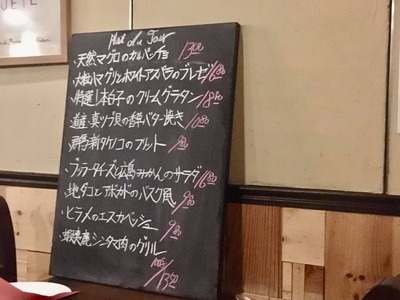 Plat du Jour
・天然マグロのカルパッチョ 1300
マグリとホワイトアスパラのブレゼ 1680
・特選!本白子のクリームグラタン 1800
真ツブ貝の香草バター焼き
新タケノコのフリット
・ブッラータチーズと広島みかんのサラダ 1680
・地タコとアボカドのバスク風 980
・ヒラメのエスカベッシュ 980
・蝦夷鹿シンタマ肉のグリル
1350